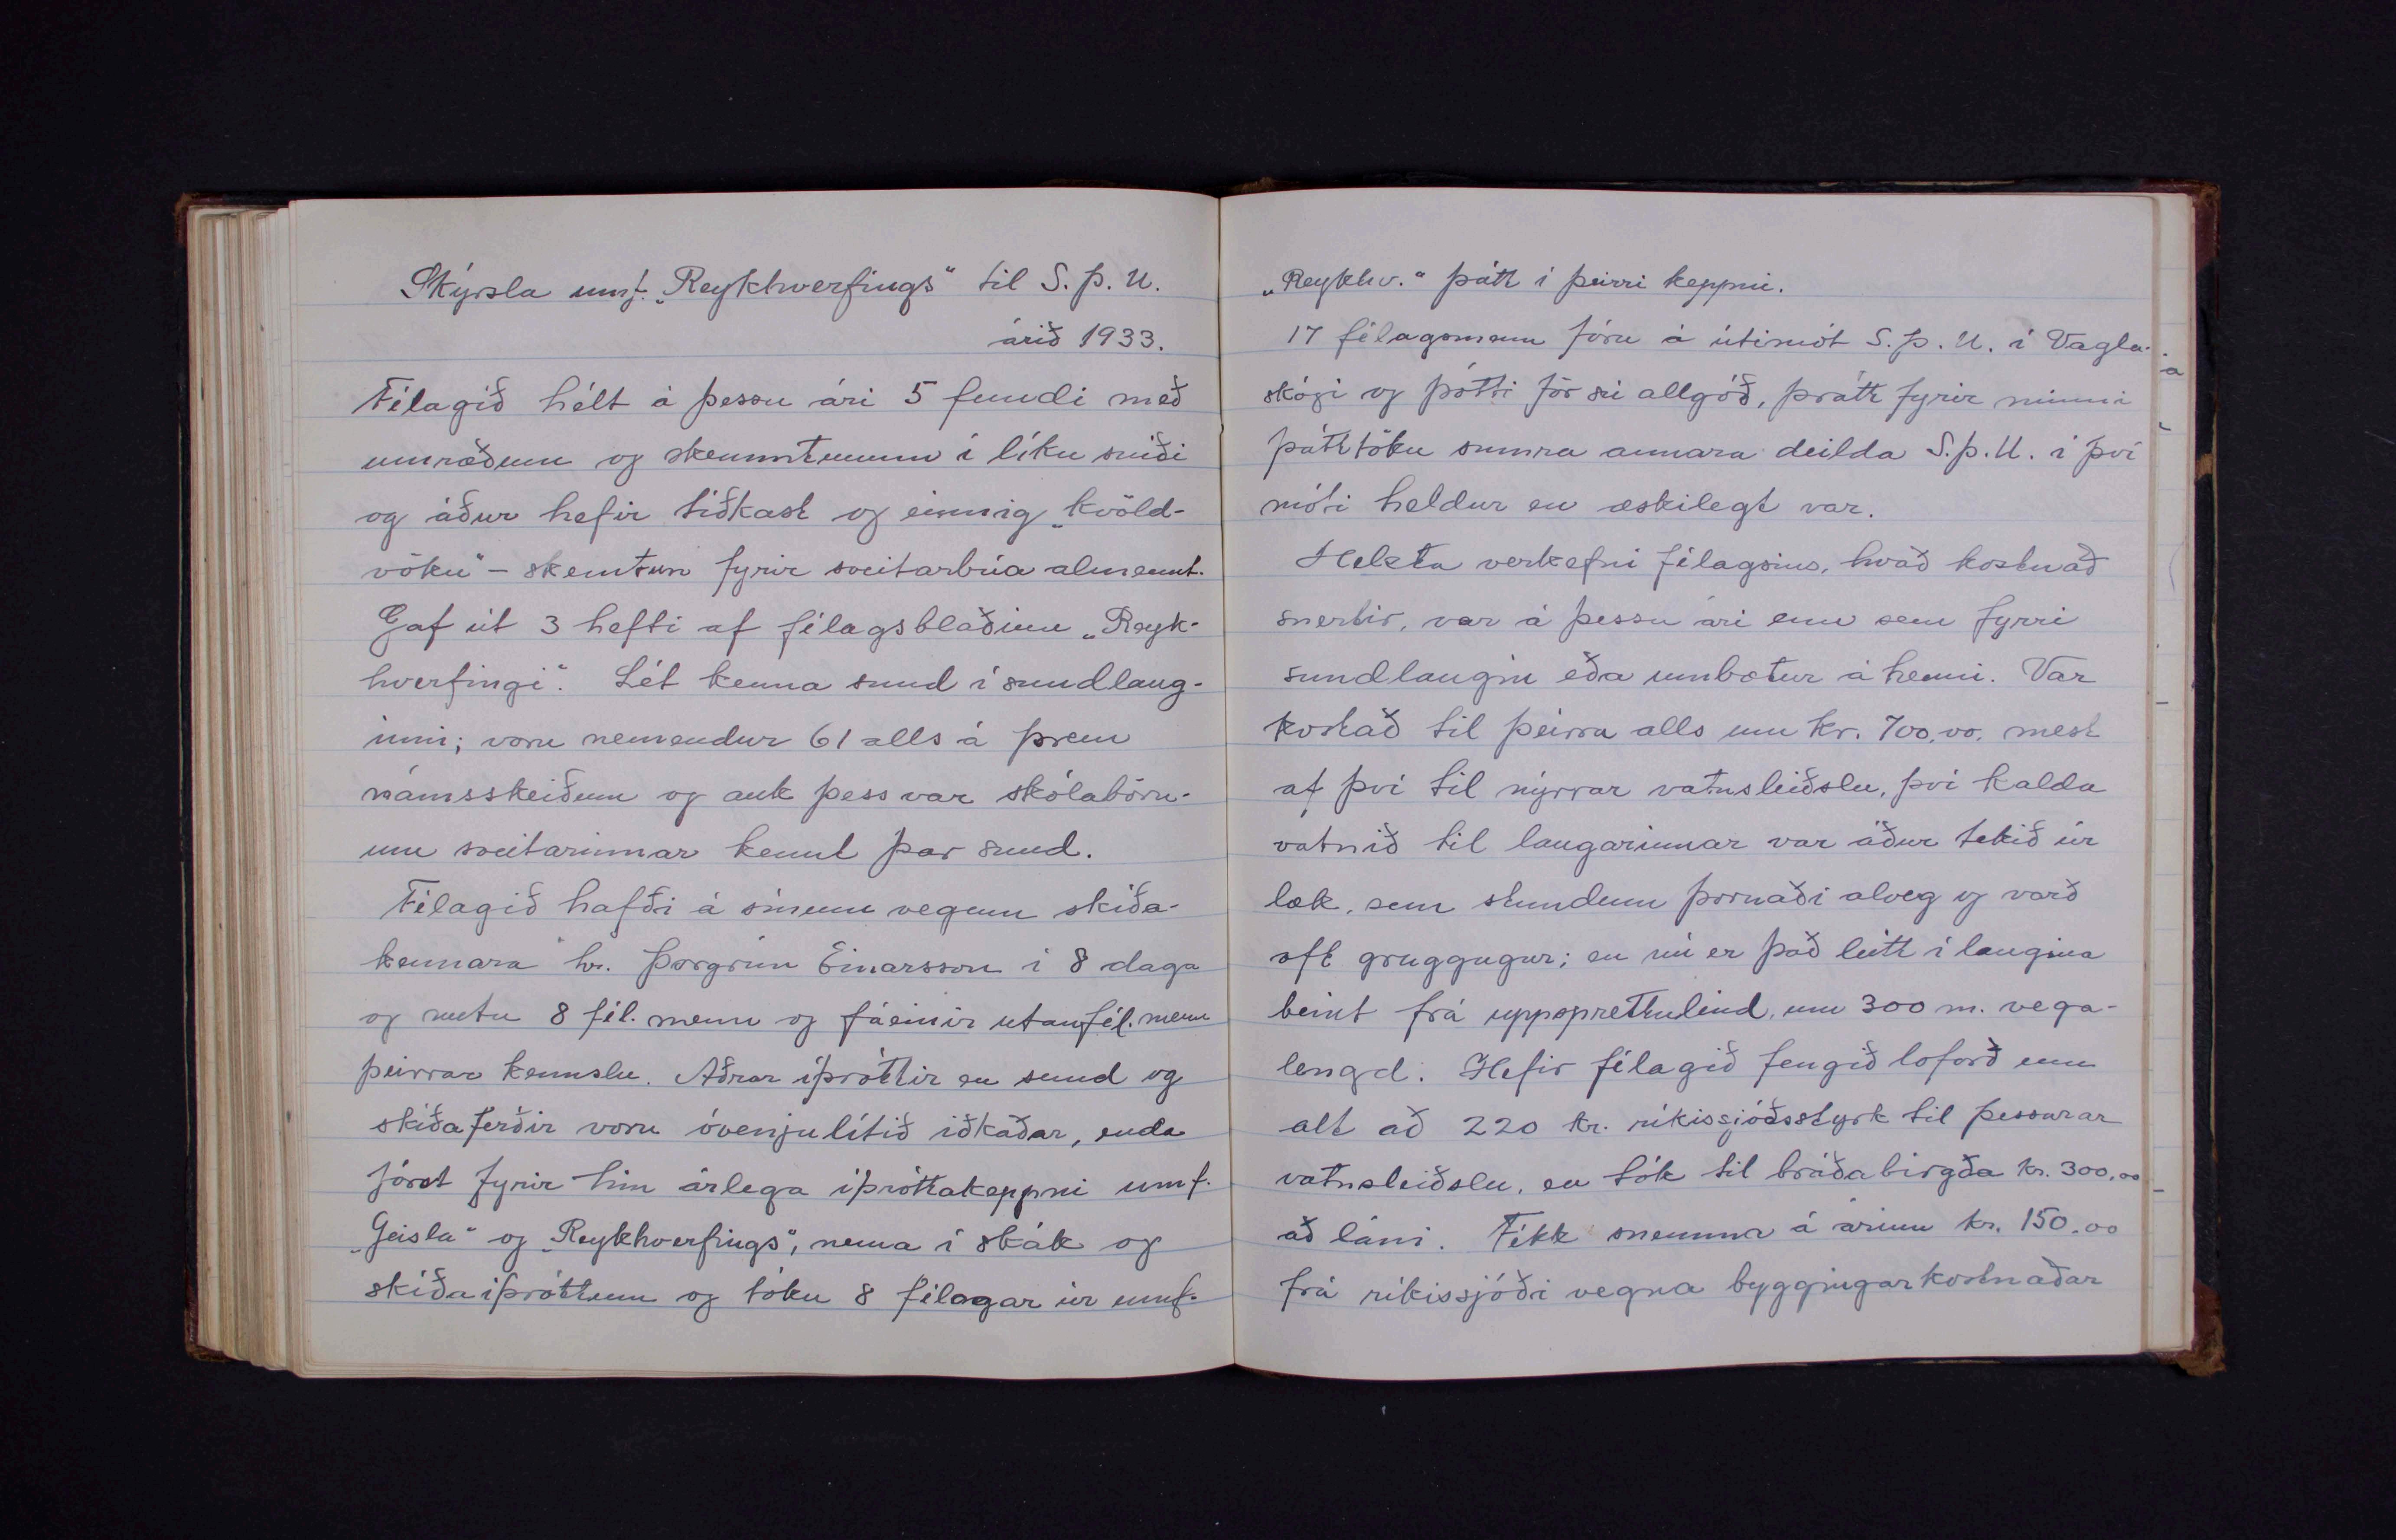 Skýrsla umf. „Reykhverfings“ til S.Þ.U.
árið 1933.
Félagið hélt á þessu ári 5 fundi með
umræðum og skemmtunum í líku sniði
og áður hefir tíðkast og einnig „kvöld-
vöku“ - skemtun fyrir sveitarbúa almennt.
Gaf út 3 hefti af félagsblaðinu „Reyk-
hverfingi“. Lét kenna sund í sundlaug-
inni; voru nemendur 61 alls á þrem
námsskeiðum og auk þess var skólabörn-
um sveitarinnar kennt þar sund.
Félagið hafði á sínum vegum skíða-
kennara hr. Þorgrím Einarsson í 8 daga
og nutu 8 fél. menn og fáeinir utanfél. menn
þeirrar kennslu. Aðrar íþróttir en sund og
skíðaferðir voru óvenjulítið iðkaðar, enda
fórst fyrir hin árlega íþróttakeppni umf.
„Geisla“ og „Reykhverfings“, nema í skák og
skíðaíþróttum og tóku 8 félagar úr umf.
„Reykhv.“ þátt í þeirri keppni.
17 félagsmenn fóru á útimót S.Þ.U. í Vagla-
skógi og þótti för sú allgóð, þrátt fyrir minni
þátttöku sumra annara deilda S.Þ.U. í því
móti heldur en æskilegt var.
Helzta verkefni félagsins, hvað kostnað
snertir, var á þessu ári enn sem fyrri
sundlaugin eða umbætur á henni. Var
kostað til þeirra alls um kr. 700,00, mest
af því til nýrrar vatnsleiðslu, því kalda
vatnið til laugarinnar var áður tekið úr
læk, sem stundum þornaði alveg og varð
oft gruggugur; en nú er það leitt í laugina
beint frá uppsprettulind, um 300 m. vega-
lengd. Hefir félagið fengið loforð um
alt að 220 kr. ríkissjóðsstyrk til þessarar
vatnsleiðslu, en tók til bráðabirgða kr. 300,00
að láni. Fékk snemma á árinu kr. 150.00
frá ríkissjóði vegna byggingarkostnaðar